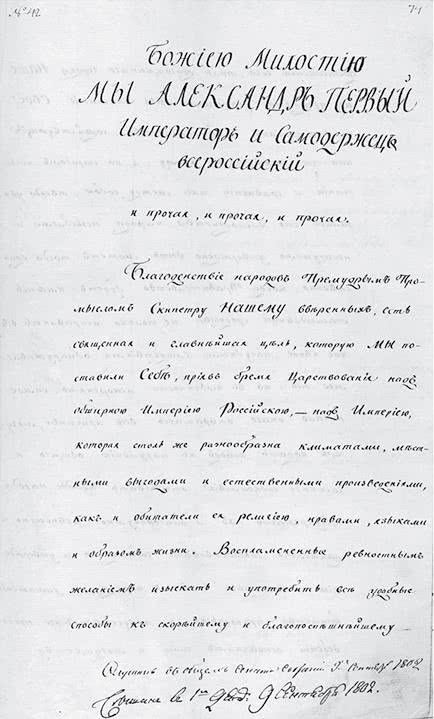 № 42
71
Божіею Милостію
МЫ АЛЕКСАНДРЪ ПЕРВЫЙ
Императоръ и Самодержецъ
всероссійскій
и прочая, и прочая, и прочая.
Благоденствіе народовъ Премудрымъ Про-
мысломъ Скипетру Нашему ввѣренныхъ, есть
священная и главнѣйшая цѣль, которую МЫ по-
ставили Себѣ, пріявъ бремя Царствованія надъ
обширною Имперіею Россійскою, — надъ Имперіею,
которая столь же разнообразна климатами, мѣст-
ными выгодами и естественными произведеніями,
какъ и обитатели ея религіею, нравами, языками
и образомъ жизни. Воспламененные ревностнымъ
желаніемъ изыскать и употребить всѣ удобные
способы къ скорѣйшему и благопоспѣшнѣйшему
въ общемъ собраніи 9го Сентября 1802
въ 1мъ 9 Сентября 1802.